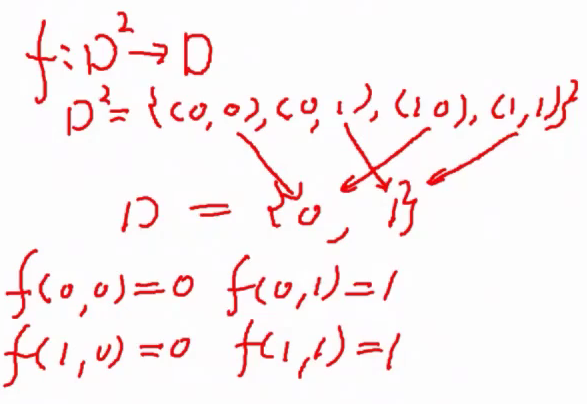 f: D² → D
D² = {(0,0), (0,1), (1 0), (1,1)}
D = {0, 1}
f(0,0)=0 f(0,1)=1
f(1,0)=0 f(1,1)=1